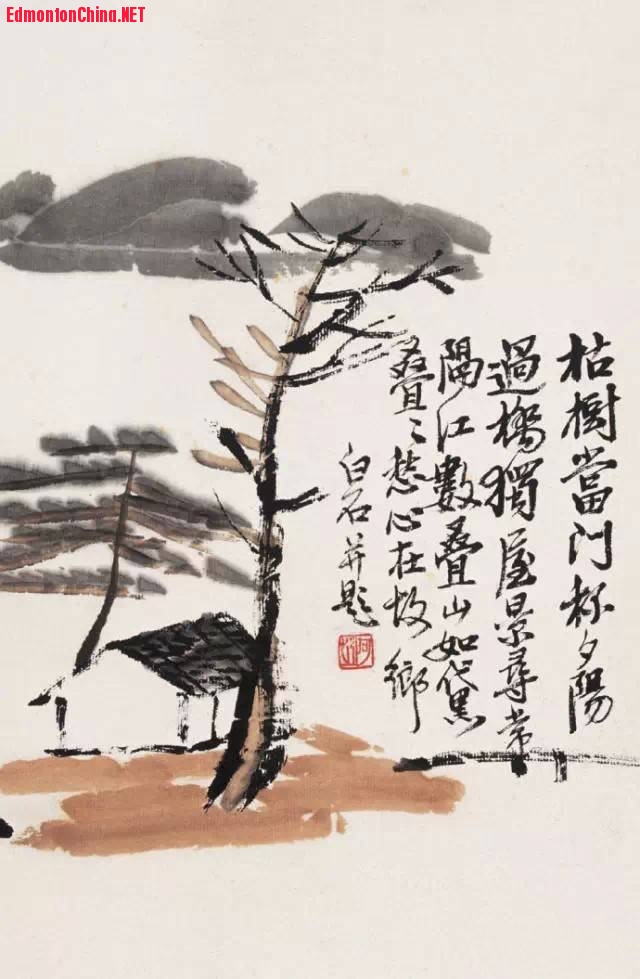 EdmontonChina.NET
枯樹當門夕陽
過橋獨屋景尋常
隔江數疊山如黛
疊〻愁心在故鄉
白石并題
阿芝